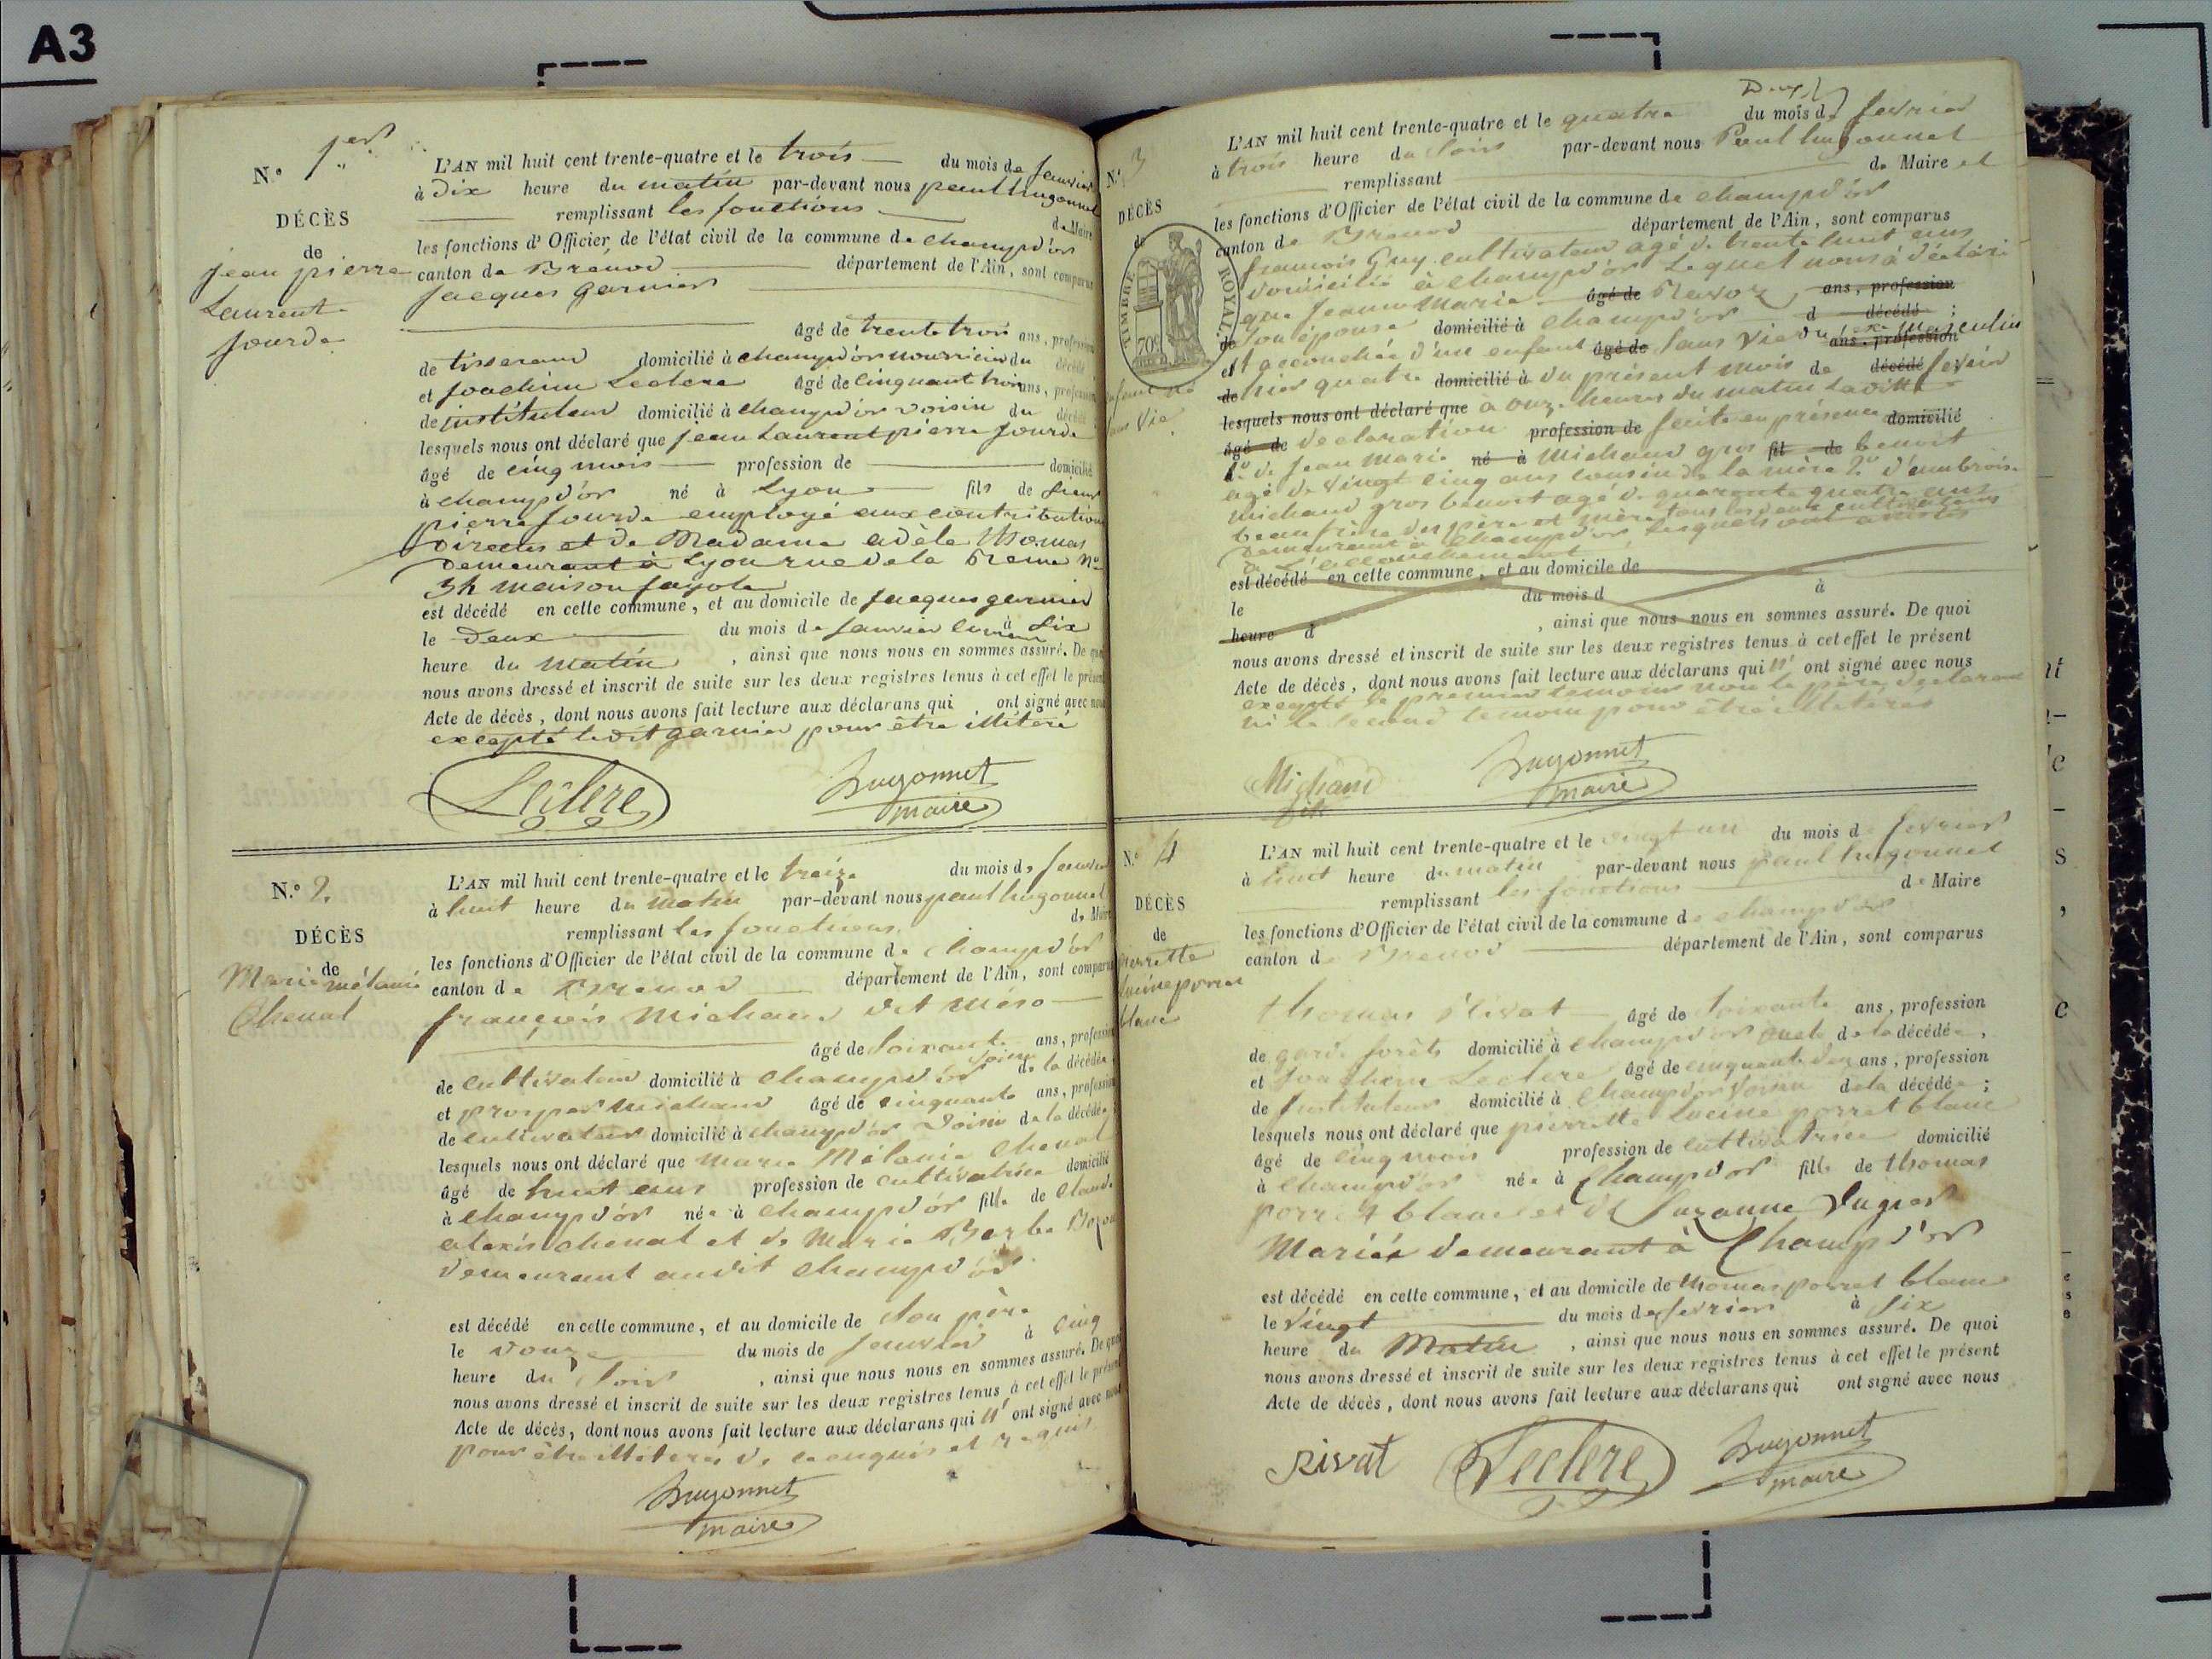 A3
N.° 1er
DÉCÈS
de
jean pierre
Laurent
jourde
L'AN mil huit cent trente-quatre et le trois du mois de janvier
à dix heure du matin par-devant nous paul hugonnet
remplissant les fonctions de Maire
les fonctions d'Officier de l'état civil de la commune de champd'or
canton de Brénod département de l'Ain, sont comparus
jacques garnier
âgé de trente trois ans, profession
de tisserand domicilié à champd'or nourricier du décédé
et joachim Leclere âgé de cinquant trois ans, profession
de instituteur domicilié à champd'or voisin du décédé
lesquels nous ont déclaré que jean Laurent pierre jourde
âgé de cinq mois profession de domicilié
à champd'or né à Lyon fils de sieur
pierre jourde employé aux contributions
directes et de Madame adèle thomas
demeurant à Lyon rue de la N°
34 maison fayole
est décédé en cette commune, et au domicile de jacques garnier
le deux du mois de janvier à dix
heure du matin, ainsi que nous nous en sommes assuré. De quoi
nous avons dressé et inscrit de suite sur les deux registres tenus à cet effet le présent
Acte de décès, dont nous avons fait lecture aux déclarans qui ont signé avec nous
excepté ledit garnier pour être illiteré
Leclere
hugonnet
maire
N.° 2.
DÉCÈS
de
Marie mélanie
Chenal
L'AN mil huit cent trente-quatre et le treize du mois de janvier
à huit heure du matin par-devant nous paul hugonnet
remplissant les fonctions de Maire
les fonctions d'Officier de l'état civil de la commune de champd'or
canton de Brenod département de l'Ain, sont comparus
françois Michaud dit méro
âgé de soixante ans, profession
de cultivateur domicilié à champd'or voisin de la décédée
et prosper Michaud âgé de cinquante ans, profession
de cultivateur domicilié à champd'or voisin de la décédée
lesquels nous ont déclaré que marie Mélanie Chenal
âgé de huit ans profession de cultivatrice domicilié
à champd'or née à champd'or fille de claude
alexis chenal et de Marie Barbe
demeurant audit champd'or
est décédé en cette commune, et au domicile de son père
le douze du mois de janvier à cinq
heure du soir, ainsi que nous nous en sommes assuré. De quoi
nous avons dressé et inscrit de suite sur les deux registres tenus à cet effet le présent
Acte de décès, dont nous avons fait lecture aux déclarans qui n' ont signé avec nous
pour être illiterés de ce enquis et requis.
hugonnet
maire
N.° 3
DÉCÈS
de
TIMBRE ROYAL
70c
enfant né
sans vie
L'AN mil huit cent trente-quatre et le quatre du mois de février
à trois heure du soir par-devant nous Paul hugonnet
remplissant de Maire et
les fonctions d'Officier de l'état civil de la commune de champd'or
canton de Brenod département de l'Ain, sont comparus
françois Guy cultivateur agé de trente huit ans
domicilié à champd'or Lequel nous à déclaré
que jeanne Marie âgé de Ravoz ans, profession
de son épouse domicilié à champd'or d décédé;
et accouchée d'un enfant âgé de sans vie du sexe masculin ans, profession
de hier quatre domicilié à du présent mois de décédé fevrier
lesquels nous ont déclaré que à onze heures du matin Ladite
âgé de declaration profession de faite en présence domicilié
1° de jean Marie né à Michaud gros fil de benoit
agé de vingt cinq ans cousin de la mère 2° d'ambroise
Michaud gros benoit agé de quarante quatre ans
beaufrère des père et mère tous les deux cultivateurs
demeurant à champd'or, lesquels ont assistés
à L'accouchement
est décédé en cette commune, et au domicile de
le du mois d à
heure d, ainsi que nous nous en sommes assuré. De quoi
nous avons dressé et inscrit de suite sur les deux registres tenus à cet effet le présent
Acte de décès, dont nous avons fait lecture aux déclarans qui n' ont signé avec nous
excepté le premier temoin non le père declarant
ni le second temoin pour être illiterés
Michaud
fils
hugonnet
maire
N.° 4
DÉCÈS
de
pierrette
Lucine porret
blanc
L'AN mil huit cent trente-quatre et le vingt un du mois de fevrier
à huit heure du matin par-devant nous paul hugonnet
remplissant les fonctions de Maire
les fonctions d'Officier de l'état civil de la commune de champd'or
canton de Brenod département de l'Ain, sont comparus
thomas Rivat âgé de soixante ans, profession
de garde forêts domicilié à champd'or oncle de la décédée,
et joachim Leclere âgé de cinquante deux ans, profession
de Instituteur domicilié à Champd'or voisin de la décédée;
lesquels nous ont déclaré que pierrette Lucine porret blanc
âgé de cinq mois profession de cultivatrice domicilié
à champd'or née à Champd'or fille de thomas
porret blanc et de Suzanne
Mariés demeurant à Champd'or
est décédé en cette commune, et au domicile de thomas porret blanc
le vingt du mois de fevrier à six
heure du Matin, ainsi que nous nous en sommes assuré. De quoi
nous avons dressé et inscrit de suite sur les deux registres tenus à cet effet le présent
Acte de décès, dont nous avons fait lecture aux déclarans qui ont signé avec nous
Rivat
Leclere
hugonnet
maire